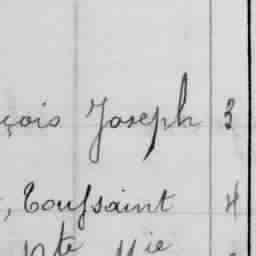 çois Joseph 3
, Toussaint 4